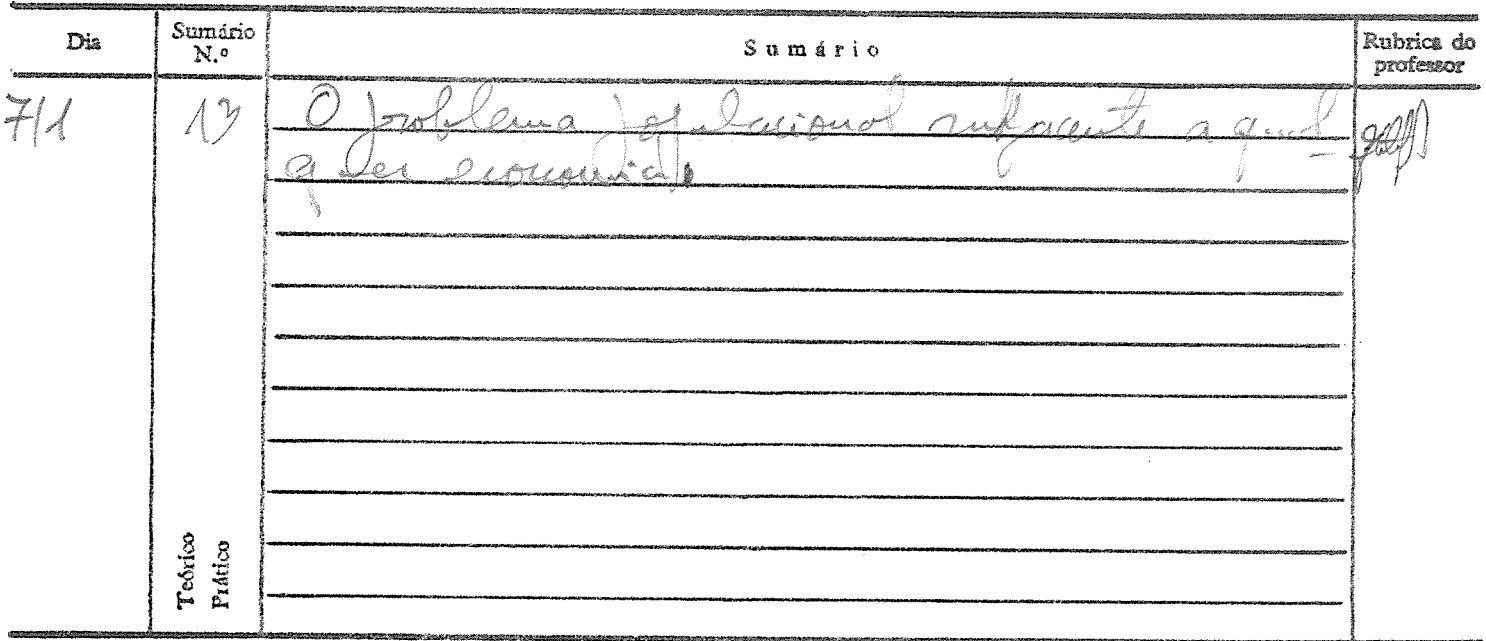 Dia
Sumário
N.º
Sumário
Rubrica do
professor
7/1
13
O problema populacional subjacente a qual-
quer economia.
Teórico
Prático